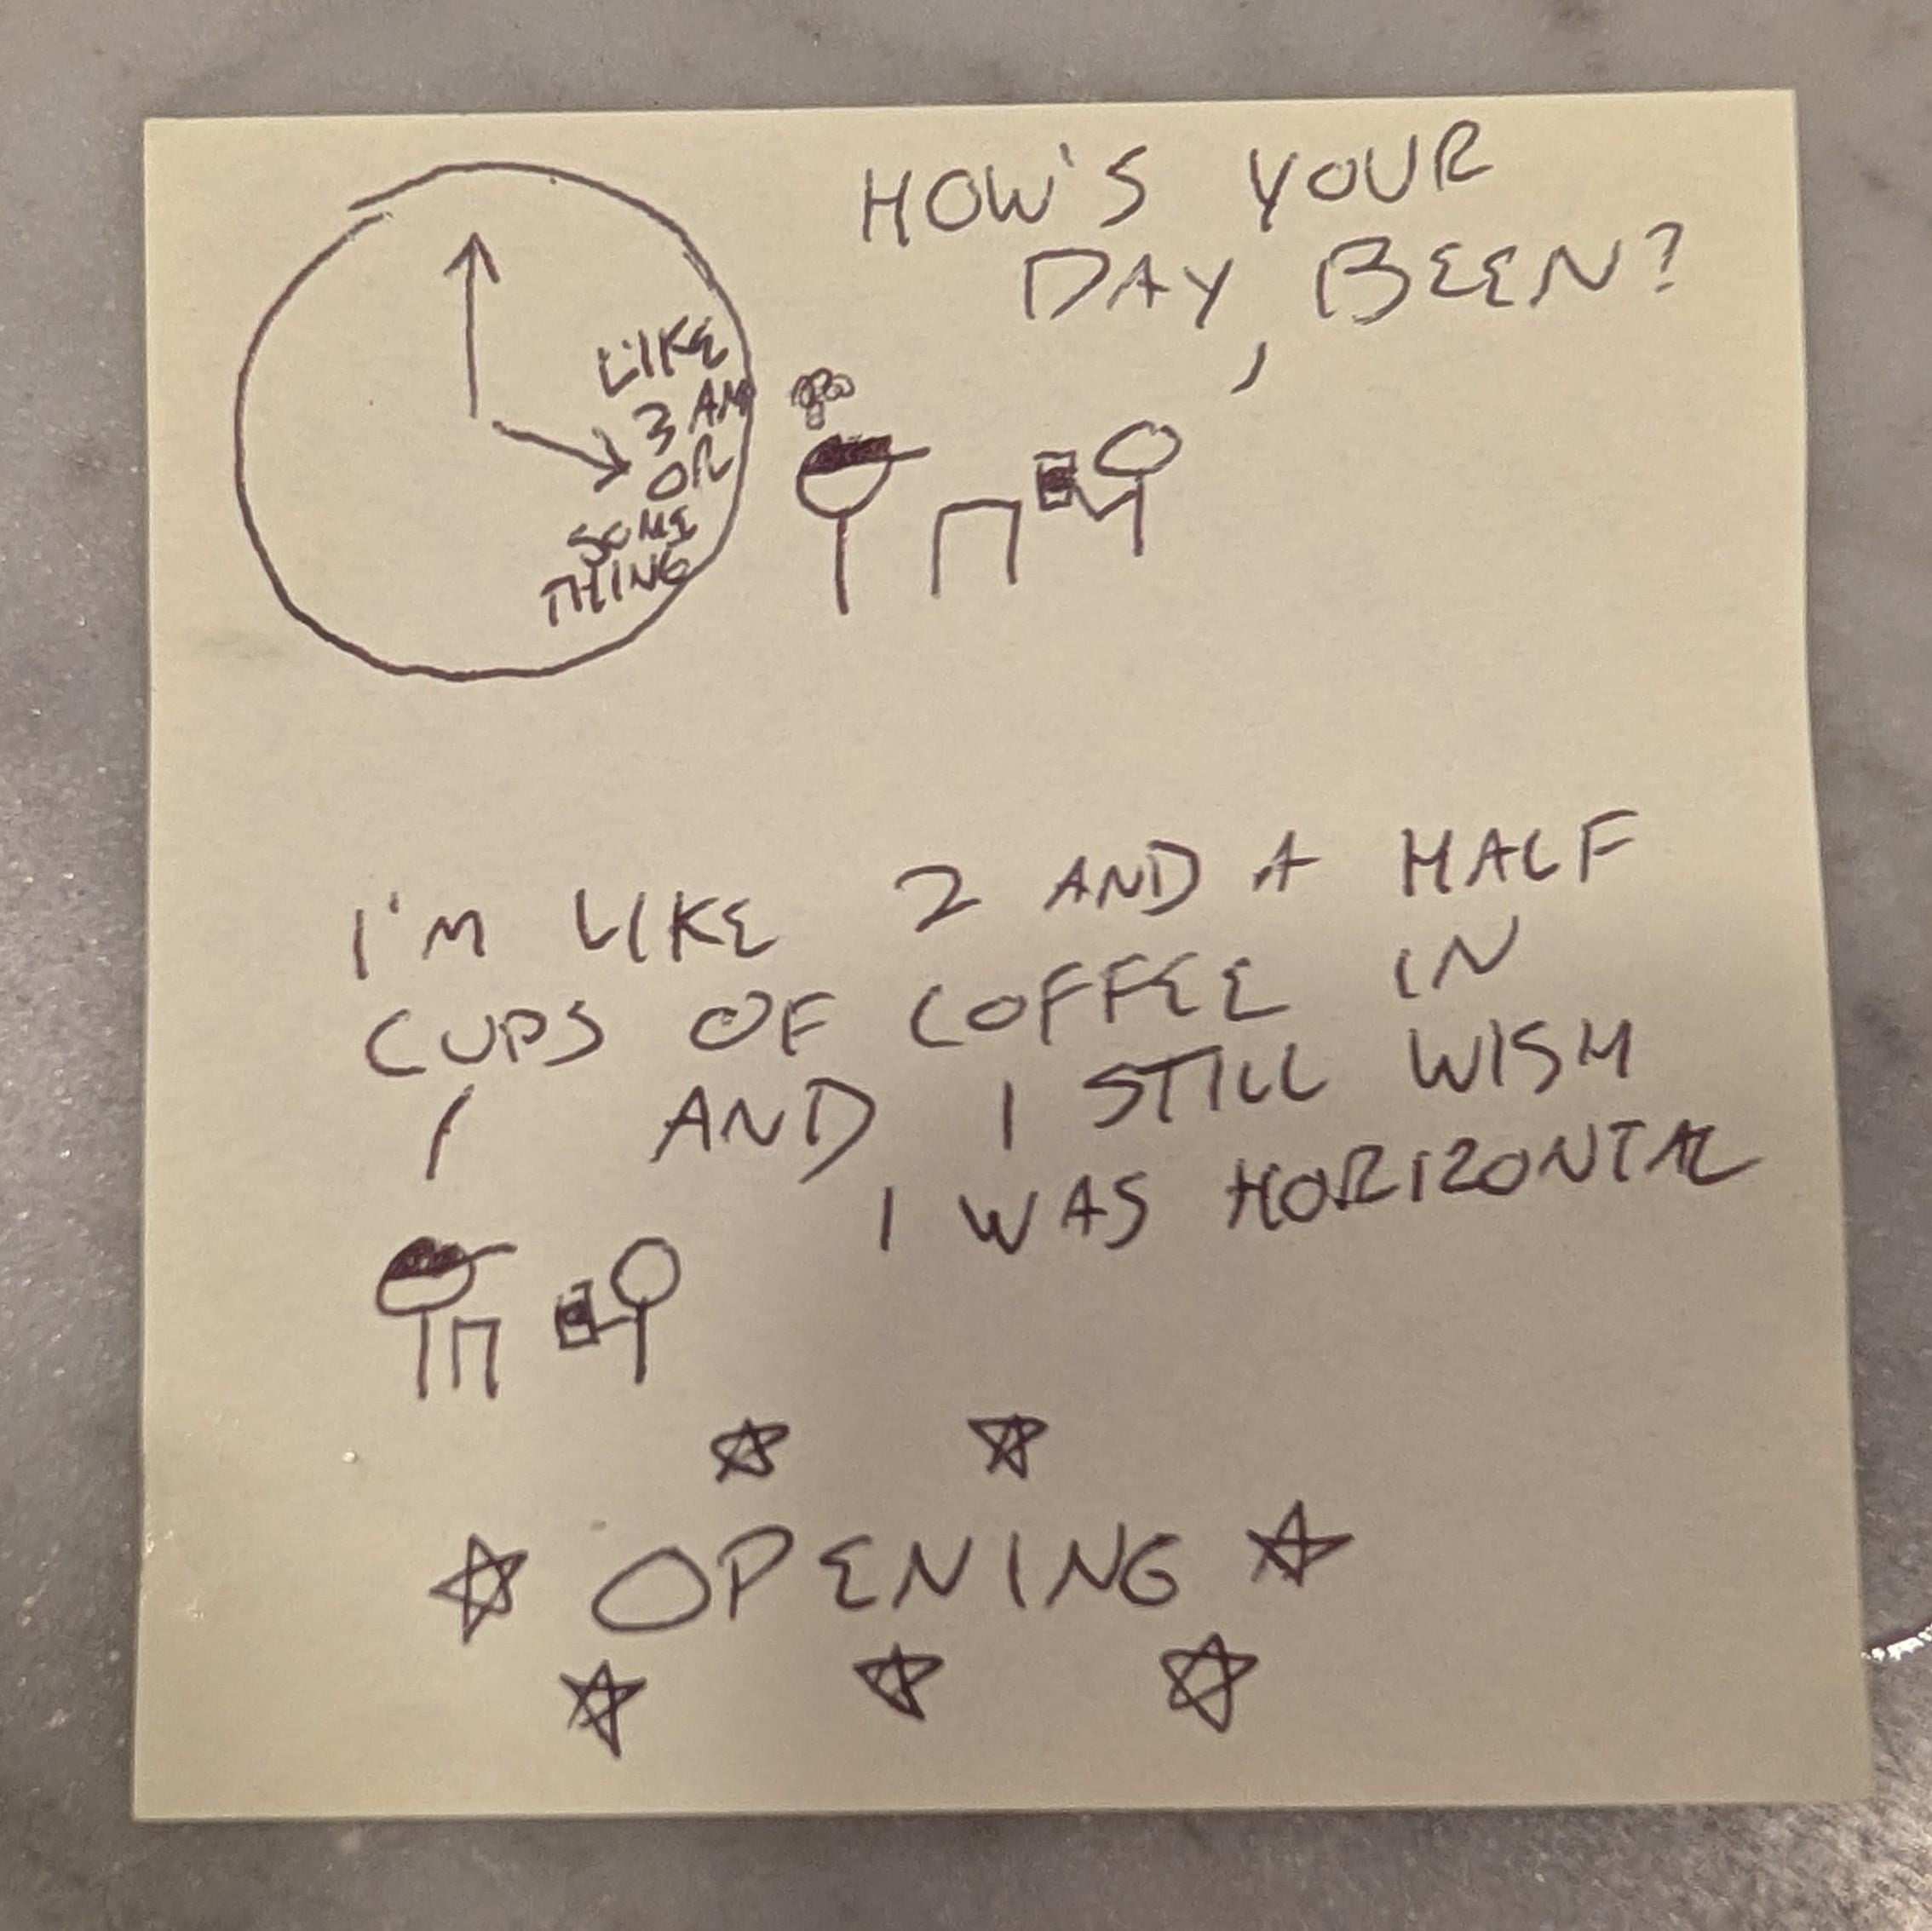 HOW'S YOUR
DAY BEEN?
LIKE
3 AM
OR
SOME
THING
I'M LIKE 2 AND A HALF
CUPS OF COFFEE IN
AND I STILL WISH
I WAS HORIZONTAL
OPENING